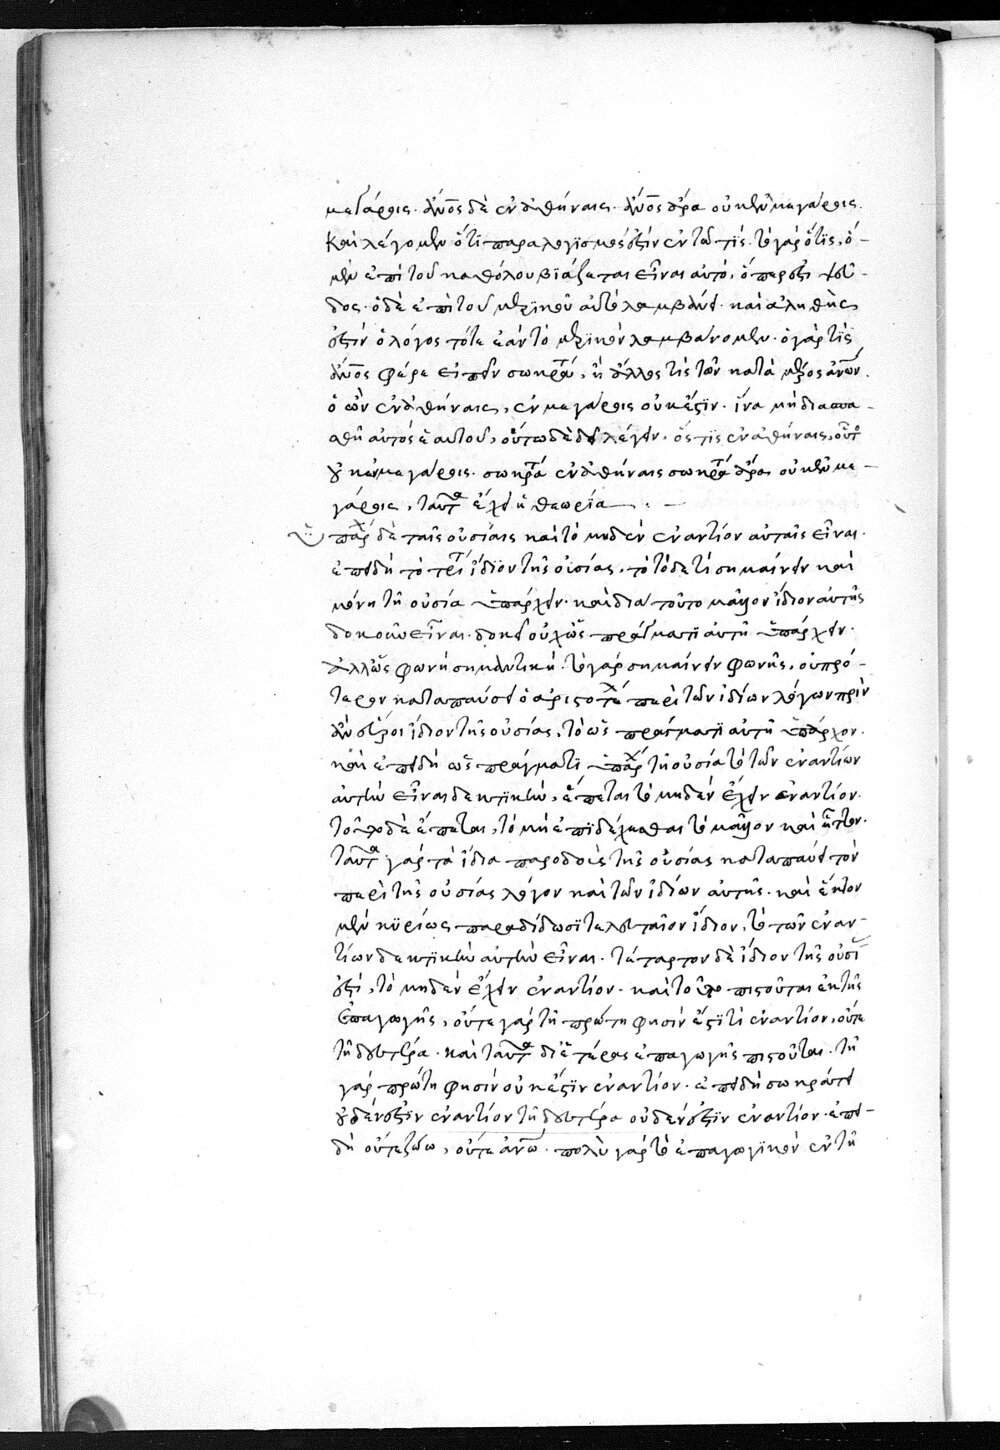 μεγάροις· ἄνος δὲ ἐν ἀθήναις· ἄνος ἄρα οὐκ ἐν μεγάροις.
καὶ λέγομεν ὅτι παραλογισμός ἐστιν ἐν τῷ τίς. τὸ γὰρ ὅτις, ὁ-
μὲν ἐπὶ τοῦ καθόλου βιάζεται εἶναι αὐτό, ὅπερ ἐστὶ ψεῦ-
δος· ὁ δὲ ἐπὶ τοῦ μερικοῦ αὐτὸ λαμβάνει· καὶ ἀληθής
ἐστιν ὁ λόγος τότε ἐὰν τὸ μερικὸν λαμβάνομεν· ὁ γὰρ τὶς
ἄνος φέρε εἰπεῖν σωκρά, ἢ ἄλλος τὶς τῶν κατὰ μέρος ἀνων.
ὁ ὢν ἐν ἀθήναις, ἐν μεγάροις οὐκ ἔστιν· ἵνα μὴ διασπα-
σθῇ αὐτὸς ἑαυτοῦ, οὕτω δὲ δεῖ λέγειν· ὅστις ἐν ἀθήναις, οὗτος
οὐκ ἐν μεγάροις· σωκρά ἐν ἀθήναις σωκρά ἄρα οὐκ ἐν με-
γάροις, ταῦτα ἔχει ἡ θεωρία
ὑπάρχ δὲ ταῖς οὐσίαις καὶ τὸ μηδὲν ἐναντίον αὐταῖς εἶναι·
ἐπειδὴ τὸ τρίτ ἴδιον τῆς οὐσίας, τὸ τόδε τὶ σημαίνειν καὶ
μόνῃ τῇ οὐσία ὑπάρχειν· καὶ διὰ τοῦτο μᾶλλον ἴδιον αὐτῆς
δοκοῦν εἶναι· δοκεῖ οὐχ ὡς πράγματι αὐτῇ ὑπάρχειν·
ἀλλ' ὡς φωνῇ σημαντικῇ· τὸ γὰρ σημαίνειν φωνῆς, οὐ πρό-
τερον καταπαύσει ὁ ἀριστοτέ περὶ τῶν ἰδίων λόγων πρὶν
ἂν εὕροι ἴδιον τῆς οὐσίας, τὸ ὡς πράγματι αὐτῇ ὑπάρχον.
καὶ ἐπειδὴ ὡς πράγματι ὑπάρχ τῇ οὐσία τὸ τῶν ἐναντίων
αὐτὴν εἶναι δεκτικὴν, ἕπεται τὸ μηδὲν ἔχειν ἐναντίον.
τούτω δὲ ἕπεται, τὸ μὴ ἐπιδέχεσθαι τὸ μᾶλλον καὶ ἧττον.
ταῦτα γὰρ τὰ ἴδια παραδοὺς τῆς οὐσίας καταπαύει τὸν
περὶ τῆς οὐσίας λόγον καὶ τῶν ἰδίων αὐτῆς· καὶ ἕκτον
μὲν κυρίως παραδίδωσι τελευταῖον ἴδιον, τὸ τῶν ἐναν-
τίων δεκτικὴν αὐτὴν εἶναι. τέταρτον δὲ ἴδιον τῆς οὐσί
ἐστὶ, τὸ μηδὲν ἔχειν ἐναντίον· καὶ τοῦτο πιστοῦται ἐκ τῆς
ἐπαγωγῆς, οὔτε γὰρ τῇ πρώτῃ φησίν ἔστι τὶ ἐναντίον, οὔτε
τῇ δευτέρα· καὶ ταῦτα δι' ἑτέρας ἐπαγωγῆς πιστοῦται. τῇ
γὰρ πρώτῃ φησὶν οὐκ ἔστιν ἐναντίον· ἐπειδὴ σωκράτει
οὐδέν ἐστιν ἐναντίον τῇ δευτέρα οὐδέν ἐστιν ἐναντίον· ἐπει-
δὴ οὔτε ζώω, οὔτε ἀνω· πολὺ γὰρ τὸ ἐπαγωγικὸν ἐν τῇ